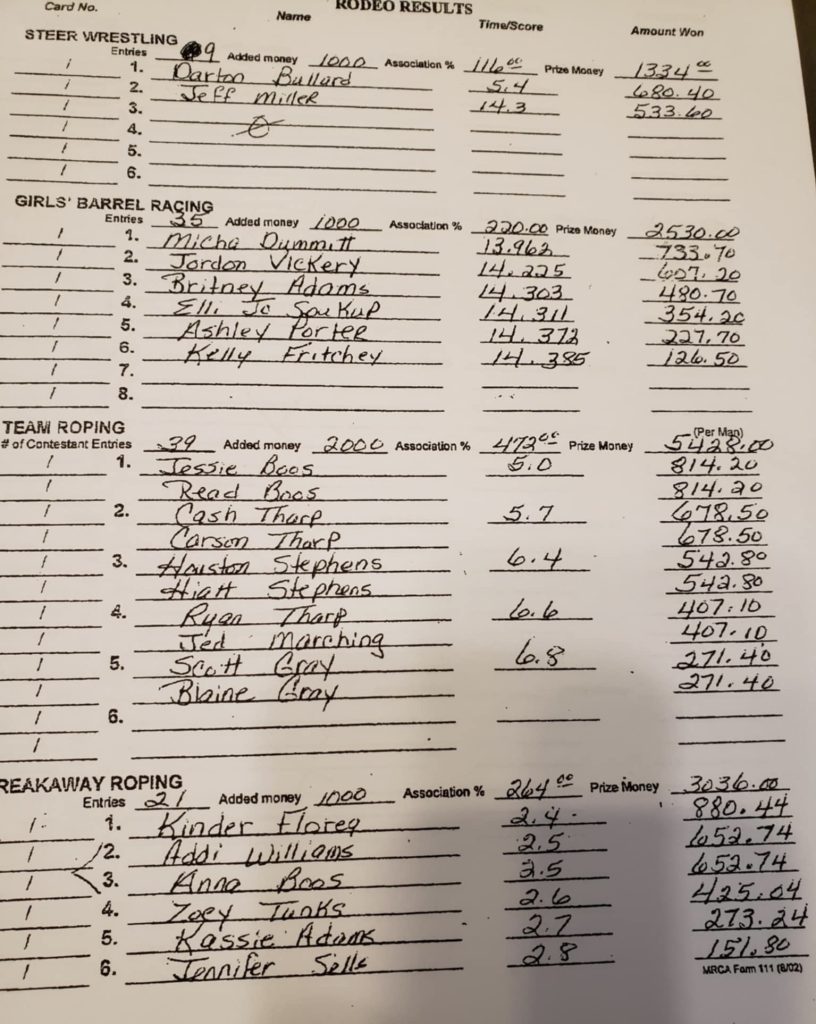 RODEO RESULTS
Card No. Name Time/Score Amount Won
STEER WRESTLING
Entries 9 Added money 1000 Association % 116.00 Prize Money 1334.00
/ 1. Darton Bullard 5.4 680.40
/ 2. Jeff Miller 14.3 533.60
/ 3.
/ 4.
/ 5.
/ 6.
GIRLS' BARREL RACING
Entries 35 Added money 1000 Association % 220.00 Prize Money 2530.00
/ 1. Micha Dummitt 13.962 733.70
/ 2. Jordon Vickery 14.225 607.20
/ 3. Britney Adams 14.303 480.70
/ 4. Elli Jo Soukup 14.311 354.20
/ 5. Ashley Porter 14.372 227.70
/ 6. Kelly Fritchey 14.385 126.50
/ 7.
/ 8.
TEAM ROPING (Per Man)
# of Contestant Entries 39 Added money 2000 Association % 472.00 Prize Money 5428.00
/ 1. Jessie Boos 5.0 814.20
/ Read Boos 814.20
/ 2. Cash Tharp 5.7 678.50
/ Carson Tharp 678.50
/ 3. Houston Stephens 6.4 542.80
/ Hiatt Stephens 542.80
/ 4. Ryan Tharp 6.6 407.10
/ Jed Marching 407.10
/ 5. Scott Gray 6.8 271.40
/ Blaine Gray 271.40
/ 6.
/
REAKAWAY ROPING
Entries 21 Added money 1000 Association % 264.00 Prize Money 3036.00
/ 1. Kinder Florea 2.4 880.44
/ 2. Addi Williams 2.5 652.74
/ 3. Anna Boos 2.5 652.74
/ 4. Zoey Tunks 2.6 425.04
/ 5. Kassie Adams 2.7 273.24
/ 6. Jennifer Sells 2.8 151.80
MRCA Form 111 (8/02)